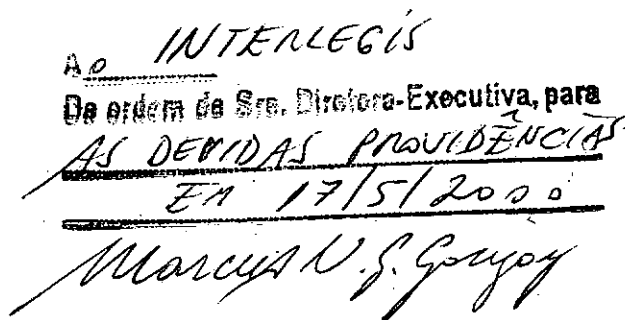 Ao INTERLEGIS
De ordem da Sra. Diretora-Executiva, para
AS DEVIDAS PROVIDÊNCIAS
EM 17/5/2000
Marcus V. G.